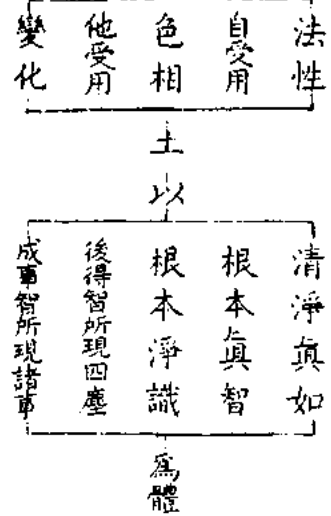 法性
自受用
色相
他受用
變化
土
以
清淨真如
根本真智
根本淨識
後得智所現四塵
成事智所現諸事
為體